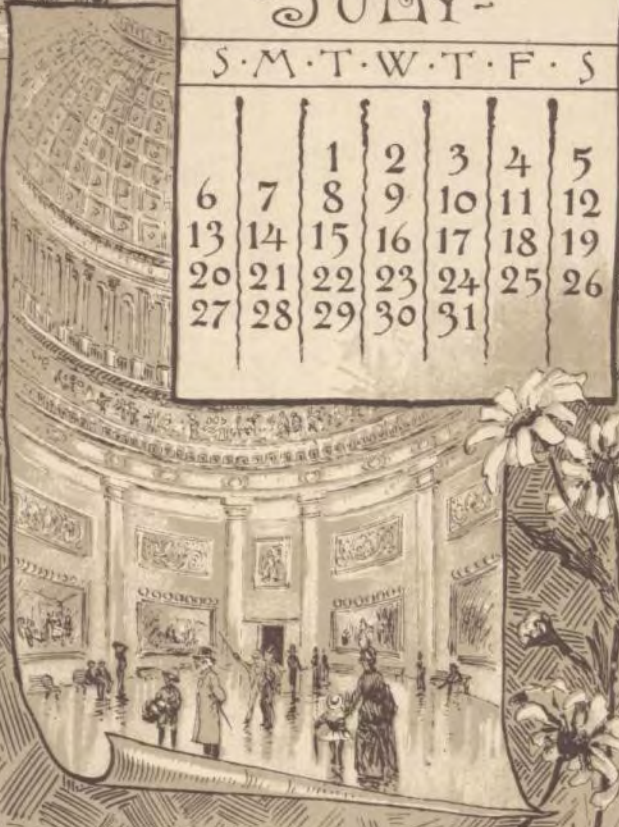 JULY
S·M·T·W·T·F·S
1 2 3 4 5
6 7 8 9 10 11 12
13 14 15 16 17 18 19
20 21 22 23 24 25 26
27 28 29 30 31